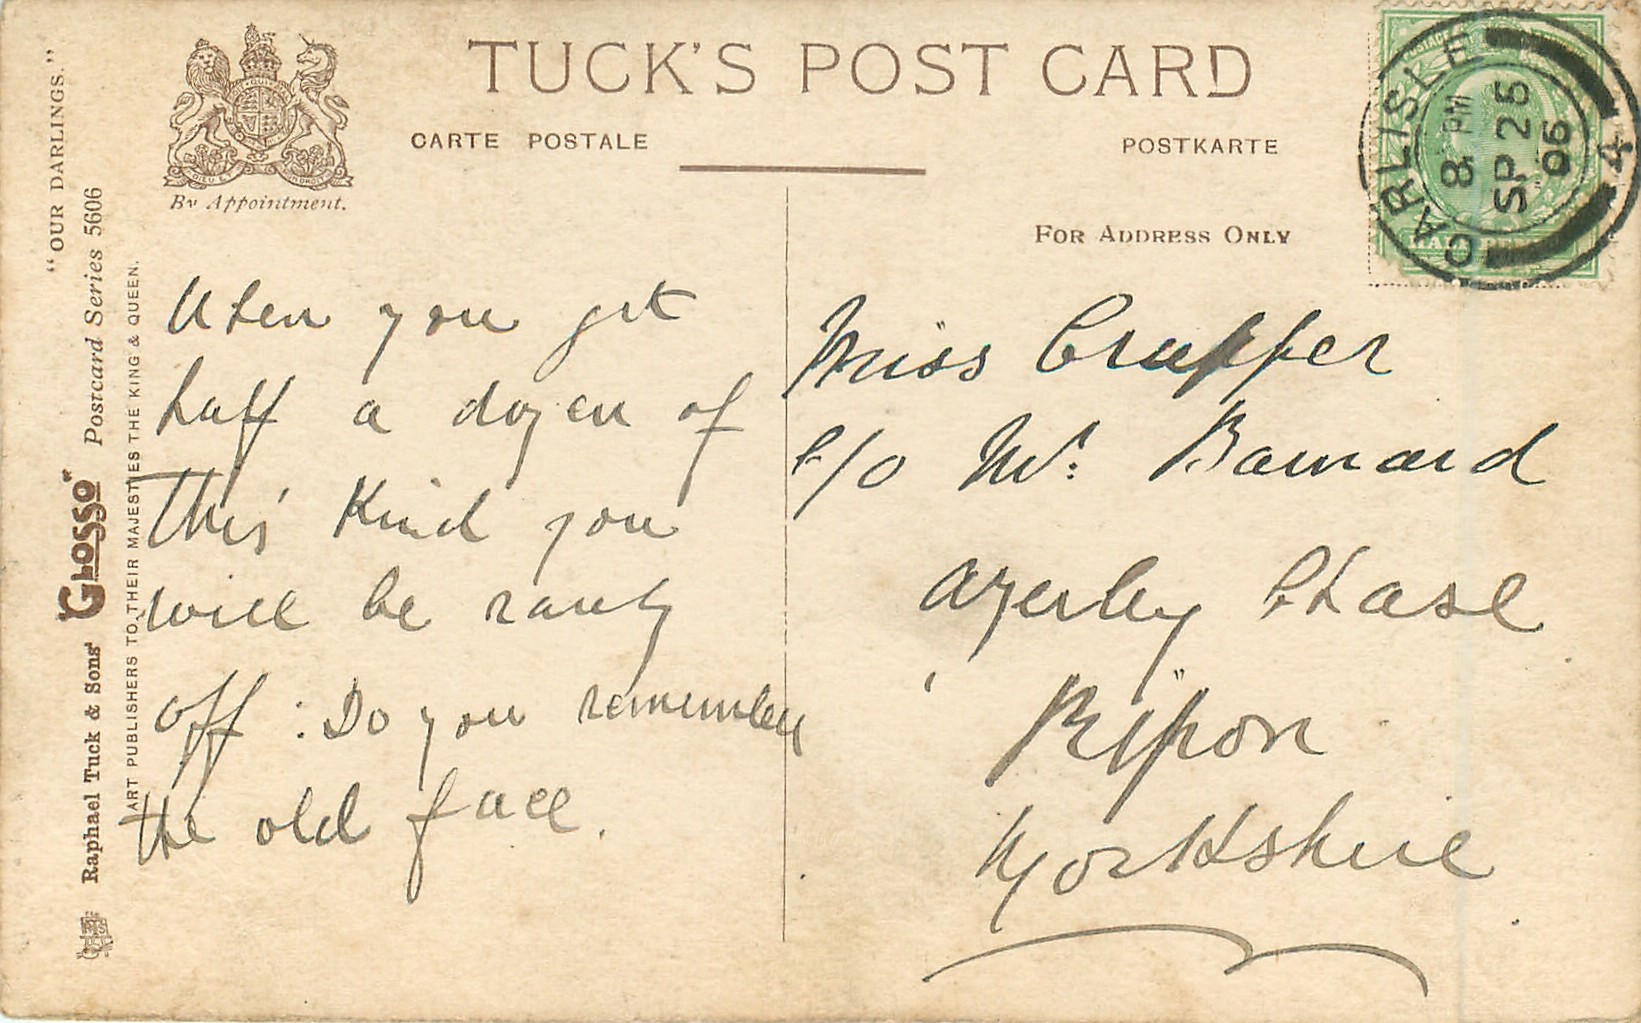 TUCK'S POST CARD
CARTE POSTALE
POSTKARTE
By Appointment.
FOR ADDRESS ONLY
CARLISLE
8 PM
SP 25
06
4
"OUR DARLINGS."
Raphael Tuck & Sons' "GLOSSO" Postcard Series 5606
ART PUBLISHERS TO THEIR MAJESTIES THE KING & QUEEN.
When you get
half a dozen of
this kind you
will be
off : Do you remember
the old face.
Miss Crupper
c/o Mr. Barnard
Azerley Chase
Ripon
Yorkshire